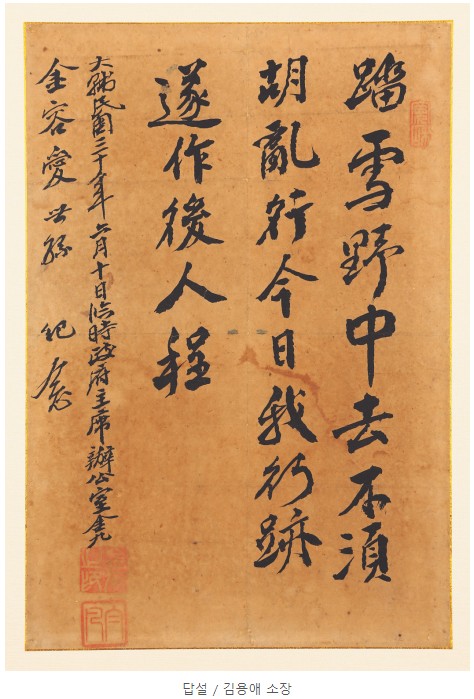 踏雪野中去不須
胡亂行今日我行跡
遂作後人程
大韓民國三十年六月十日臨時政府主席辦公室金九
金容愛 紀念
답설 / 김용애 소장